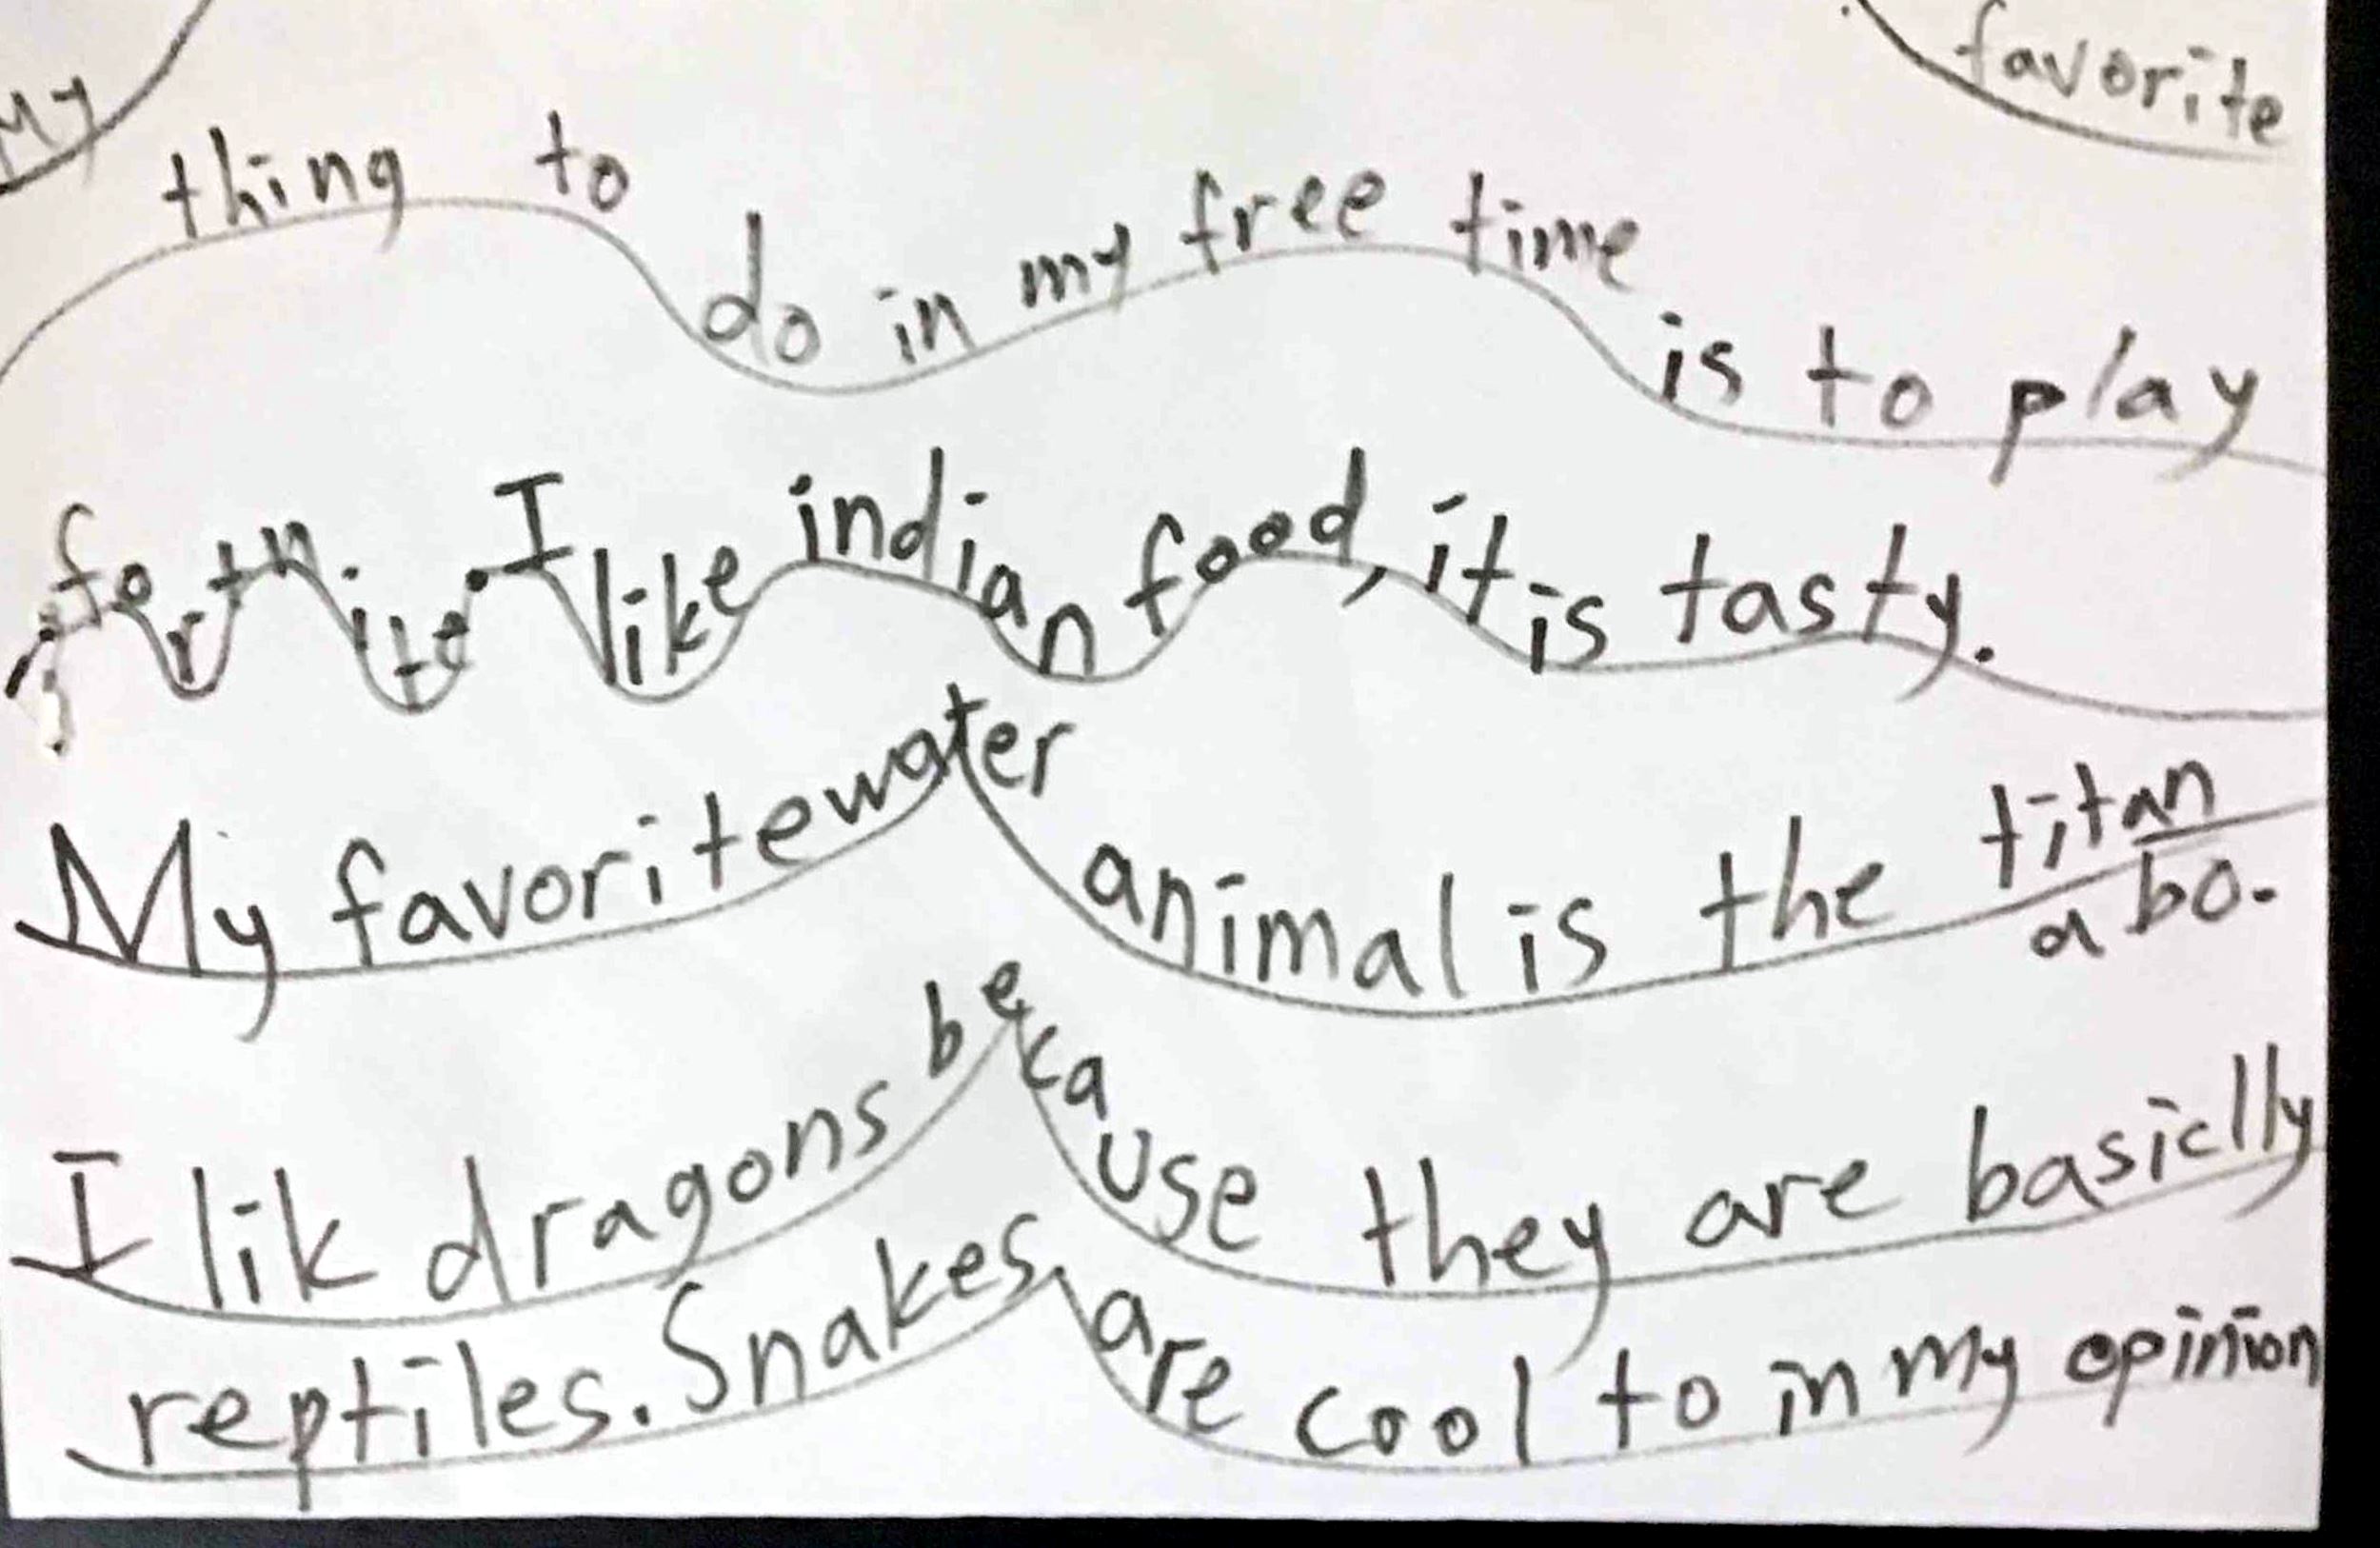 My favorite
thing to do in my free time is to play
fortnite. I like indian food, it is tasty.
My favorite water animal is the titan
a bo.
I lik dragons because they are basiclly
reptiles. Snakes are cool to in my opinion